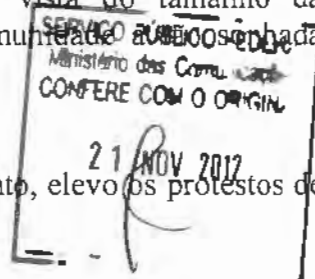 vista do tamanho da
SERVIÇO PÚBLICO FEDE
munidade a sophada
Ministério das Comu
CONFERE COM O ORIGIN
21 NOV 2012
to, elevo os protestos de